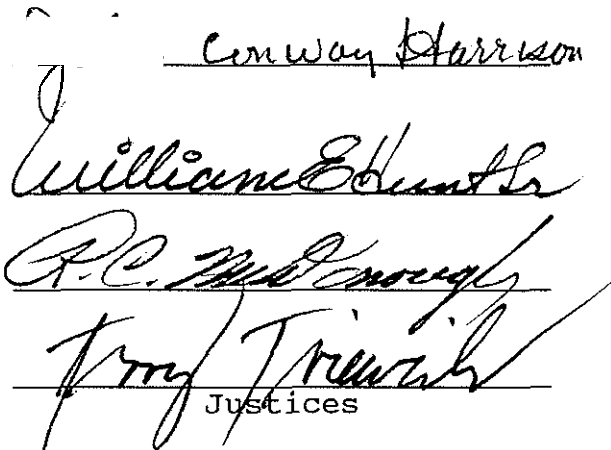 Conway Harrison
William E Hunt Sr
R. C. McDonough
Terry Trieweiler
Justices